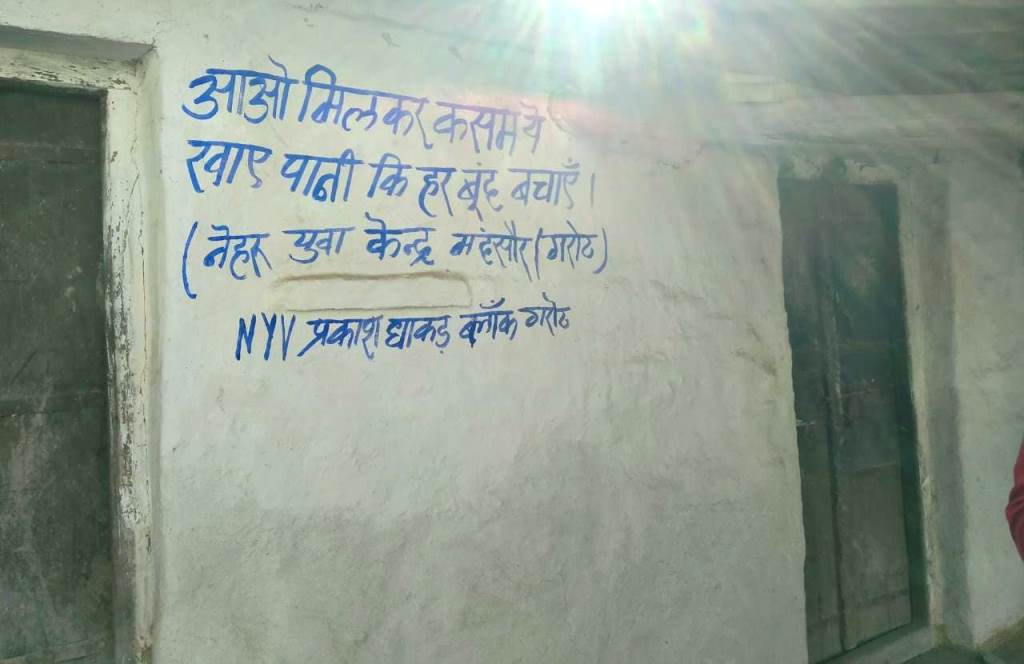 आओ मिलकर कसम ये
खाए पानी कि हर बूंद बचाएँ।
(नेहरू युवा केन्द्र मंदसौर (गरोठ)
NYV प्रकाश धाकड़ ब्लॉक गरोठ